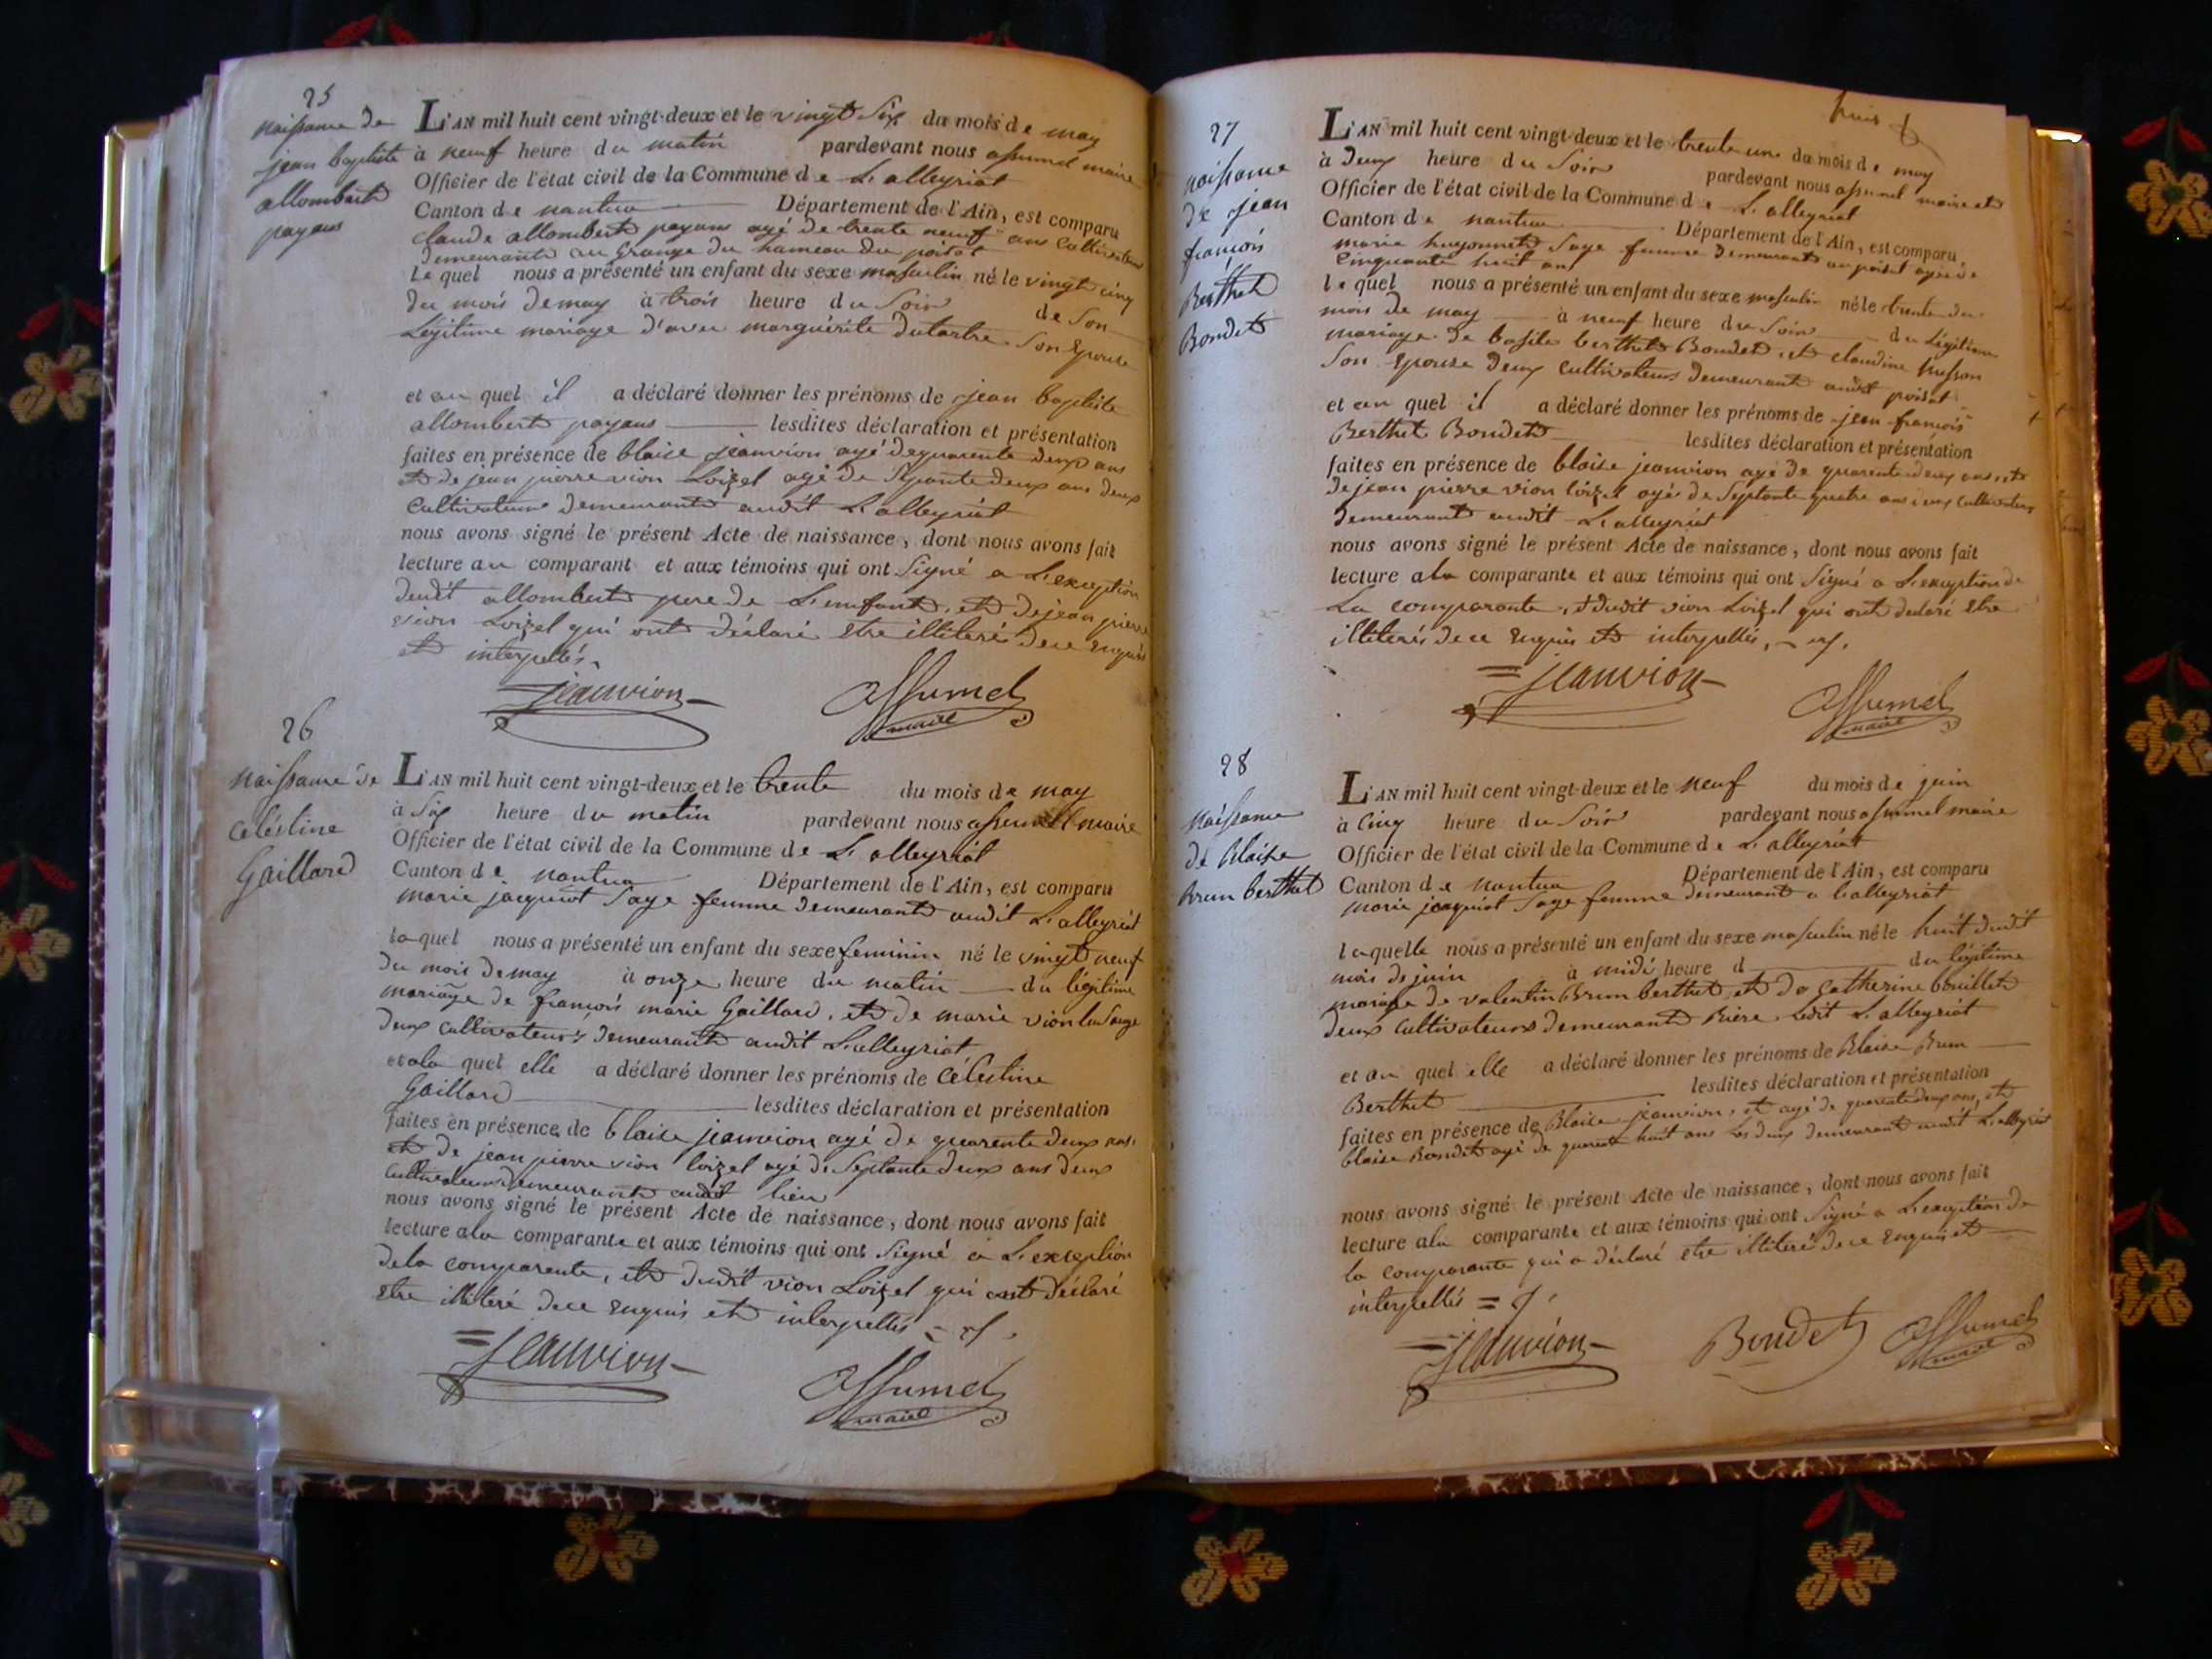 25
naissance de
jean baptiste
allombert
payans
L'AN mil huit cent vingt-deux et le vingt Six du mois de may
à neuf heure du matin pardevant nous assumel maire
Officier de l'état civil de la Commune de L'alleyriat
Canton de nantua Département de l'Ain, est comparu
claude allombert payans agé de trente neuf ans Cultivateur
demeurant au Grange du hameau du poisat
Le quel nous a présenté un enfant du sexe masculin né le vingt cinq
du mois de may à trois heure du Soir de Son
Légitime mariage d'avec marguerite dutartre Son Epouse
et au quel il a déclaré donner les prénoms de jean baptiste
allombert payans lesdites déclaration et présentation
faites en présence de blaise jeanvion agé de quarente deux ans
et de jean pierre vion Loizel agé de Septante deux ans deux
Cultivateurs demeurant audit L'alleyriat
nous avons signé le présent Acte de naissance, dont nous avons fait
lecture au comparant et aux témoins qui ont Signé a L'exception
dudit allombert pere de L'enfant, et de jean pierre
vion Loizel qui ont déclaré Etre illiteré de ce Enquis
et interpellés
jeanvion assumel
maire
26
naissance de
celéstine
Gaillard
L'AN mil huit cent vingt-deux et le trente du mois de may
à Six heure du matin pardevant nous assumel maire
Officier de l'état civil de la Commune de L'alleyriat
Canton de nantua Département de l'Ain, est comparu
marie jacquiot Sage femme demeurant audit L'alleyriat
laquel nous a présenté un enfant du sexe feminin né le vingt neuf
du mois de may à onze heure du matin du légitime
mariage de francois marie Gaillard, et de marie vion
deux cultivateurs demeurant audit L'alleyriat
et ala quel elle a déclaré donner les prénoms de Célestine
Gaillard lesdites déclaration et présentation
faites en présence de blaise jeanvion agé de quarente deux ans
et de jean pierre vion loizel agé de Septante deux ans deux
Cultivateurs demeurant audit lieu
nous avons signé le présent Acte de naissance, dont nous avons fait
lecture ala comparante et aux témoins qui ont Signé a L'exception
de la comparente, et dudit vion Loizel qui ont déclaré
Etre illiteré de ce Enquis et interpellés
jeanvion assumel
maire
27
naissance
de jean
françois
Berthet
Bondet
L'AN mil huit cent vingt-deux et le trente une du mois de may
à deux heure du Soir pardevant nous assumel maire et
Officier de l'état civil de la Commune de L'alleyriat
Canton de nantua Département de l'Ain, est comparu
marie hugonnet Sage femme demeurant au poisat agée de
Cinquante huit ans
le quel nous a présenté un enfant du sexe masculin né le trente du
mois de may à neuf heure du Soir du Légitime
mariage de basile berthet Bondet, et claudine husson
Son Epouse deux cultivateurs demeurant audit poisat
et au quel il a déclaré donner les prénoms de jean françois
Berthet Bondet lesdites déclaration et présentation
faites en présence de blaise jeanvion agé de quarente deux ans, et
de jean pierre vion loizel agé de Septante quatre ans deux Cultivateurs
demeurant audit L'alleyriat
nous avons signé le présent Acte de naissance, dont nous avons fait
lecture ala comparante et aux témoins qui ont Signé a L'exception de
La comparante, et dudit vion Loizel qui ont declaré Etre
illiterés de ce Enquis et interpellés
jeanvion assumel
maire
28
naissance
de Blaise
Brun berthet
L'AN mil huit cent vingt-deux et le neuf du mois de juin
à Cinq heure du Soir pardevant nous assumel maire
Officier de l'état civil de la Commune de L'alleyriat
Canton de Nantua Département de l'Ain, est comparu
marie jacquiot Sage femme demeurant a L'alleyriat
laquelle nous a présenté un enfant du sexe masculin né le huit dudit
mois de juin à midi heure d du légitime
mariage de valentin Brun berthet, et de catherine bouillet
deux Cultivateurs demeurant Riere Ledit L'alleyriat
et au quel elle a déclaré donner les prénoms de Blaise Brun
Berthet lesdites déclaration et présentation
faites en présence de Blaise jeanvion, et agé de quarente deux ans, et
blaise Bondet agé de quarente huit ans Les deux demeurant audit L'alleyriat
nous avons signé le présent Acte de naissance, dont nous avons fait
lecture ala comparante et aux témoins qui ont Signé a L'exception de
la comparante qui a déclaré etre illiteré de ce Enquis et
interpellés
jeanvion Bondet assumel
maire